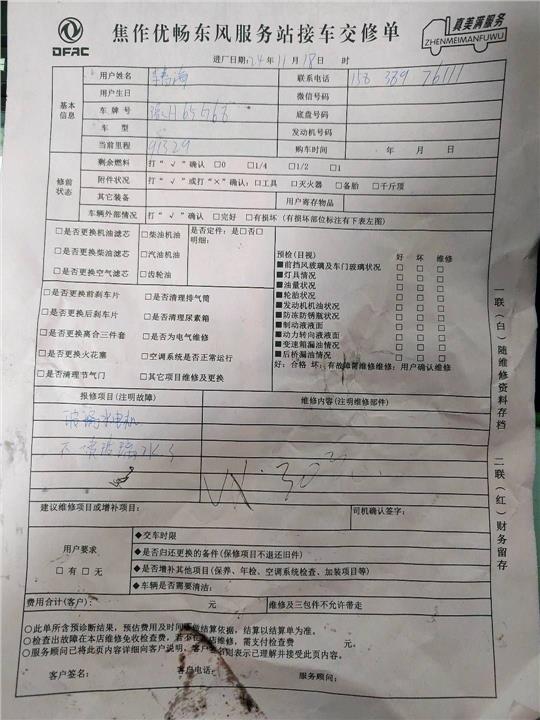 DFAC
焦作优畅东风服务站接车交修单
真美满服务
ZHENMEIMANFUWU
进厂日期:24年11月18日 时
基本信息
用户姓名 联系电话
用户生日 微信号码
车牌号 底盘号码
车 型 发动机号码
当前里程 91329 购车时间: 年 月 日
修前状态
剩余燃料 打“√”确认 □0 □1/4 □1/2 □1
附件状况 打“√”或打“×”确认:□工具 □灭火器 □备胎 □千斤顶
其它装备 用户寄存物品
车辆外部情况 打“√”确认 □完好 □有损坏(有损坏部位标注有下表左图)
□是否更换机油滤芯 □柴油机油 是否定件:是□否□
明细:
□是否更换柴油滤芯 □汽油机油
□是否更换空气滤芯 □齿轮油
□是否更换前刹车片 □是否清理排气筒
□是否更换后刹车片 □是否清理尿素箱
□是否更换离合三件套 □是否为电气维修
□是否更换火花塞 □空调系统是否正常运行
□是否清理节气门 □其它项目维修及更换
预检(目视) 好 坏 维修
■前挡风玻璃及车门玻璃状况 □ □ □
■灯具情况 □ □ □
■油量状况 □ □ □
■轮胎状况 □ □ □
■发动机机油状况 □ □ □
■防冻防锈瓶状况 □ □ □
■制动液液面 □ □ □
■动力转向液液面 □ □ □
■变速箱漏油情况 □ □ □
■后桥漏油情况 □ □ □
好:合格 坏:有故障需维修维修:用户确认维修
报修项目(注明故障) 维修内容(注明维修部件)
玻璃水电机
不喷玻璃水
建议维修项目或增补项目: 司机确认签字:
用户要求
□有 □无
◆交车时限
◆是否归还更换的备件(保修项目不退还旧件)
◆是否增补其他项目(保养、年检、空调系统检查、加装项目等)
◆车辆是否需要清洁:
费用合计(客户): 元 维修及三包件不允许带走
○此单所含预诊断结果,预估费用及时间 结算依据,结算以结算单为准。
○检查出故障在本店维修免收检查费,若 店维修,需支付检查费 元。
○服务顾问已将此页内容详细向客户说明,客户签名则表示已理解并接受此页内容。
客户签名: 客户电话: 服务顾问:
一联(白)随维修资料存档
二联(红)财务留存